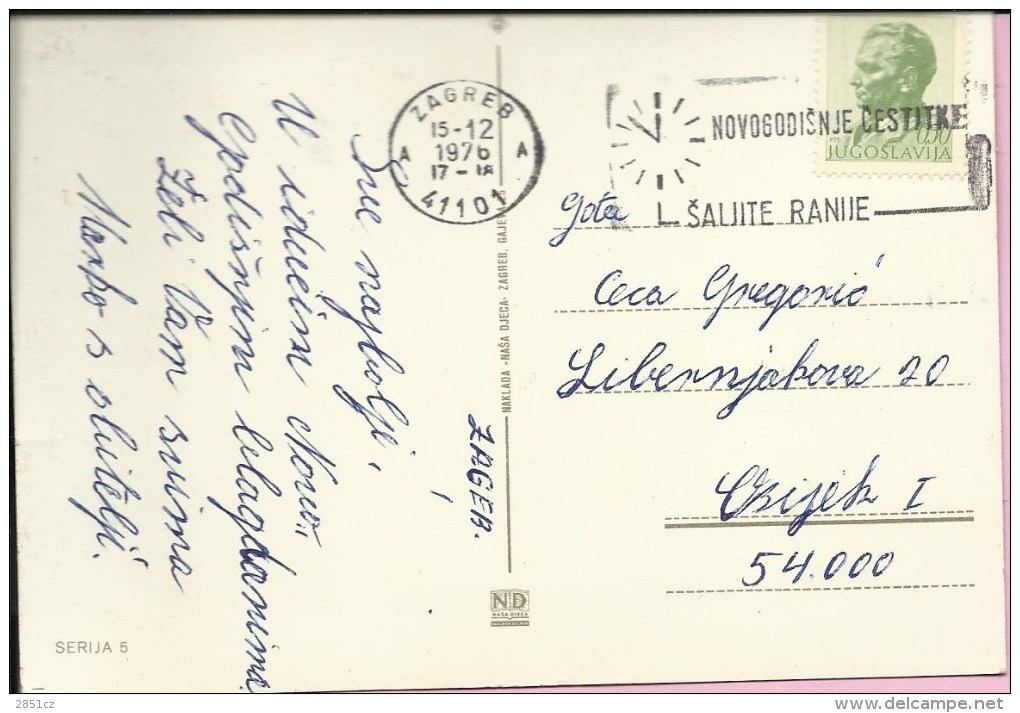 Sve najbolje,
U idućim Novo,,
Godišnjim blagdanima
Želi Vam svima
Marko s obitelji.
ZAGEB.
SERIJA 5
NAKLADA »NAŠA DJECA« ZAGREB, GAJE
ND
NAŠA DJECA
ZAGREB
15-12
1976
17-18
A A
41101
NOVOGODIŠNJE ČESTITKE
ŠALJITE RANIJE
0,50
JUGOSLAVIJA
Gđa
Ceca Gregorić
Libernjakova 20
Osijek I
54.000
2851cz
delcampe.net